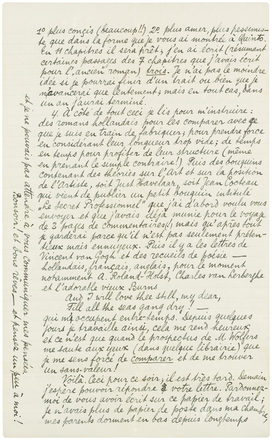 1º plus conçis (beaucoup!!) 2º plus amer, plus pessimiste
que dans la forme que je vous ai montré à Quinto.
En 11 chapitres il sera prêt, j'en ai écrit (resumant
certaines passages des 7 chapitres que j'avais écrit
pour l'ancien roman) trois. Je n'ai pas la moindre
idée si je pourrai finir d'un trait ou bien que je
n'avancerai que lentement; mais en tout cas, dans
un an j'aurai terminé.
4. A côté de tout ceci je lis pour m'instruire:
des romans hollandais pour les comparer avec ce
que je suis en train de fabriquer; pour prendre force
en considerant leur longueur trop vide; de temps
en temps pour profiter de leur structure (même
en prenant le simple contraire!) Puis des bouquins
contenant des théories sur l'Art et sur la position
de l'Artiste, soit Just Havelaar, soit Jean Cocteau
que vient de publier un petit bouquin intitulé
le Secret Professionnel que j'ai d'abord voulu vous
envoyer et que j'avais déjà munie pour le voyage
de 3 pages de commentaires) mais qu'après tout
je garderai parce qu'il n'est pas seulement prétentieux
mais ennuyeux. Puis il y a les lettres de
Vincent van Gogh et des recueils de poésie
hollandais, français, anglais, pour le moment
notamment A. Roland-Holst, Charles van Lerberghe
et l'adorable vieux Burns
And I will love thee still, my dear,
Till all the seas gang dry! —
qui m'occupent entre-temps. Depuis quelques
jours je travaille ainsi, cela me rend heureux
et ce n'est que quand le prospectus de M. Wolfers
me saute aux yeux (dans quelque librairie) que
je me sens forcé de comparer et de me trouver
un sans-valeur!
Voilà. Ceci pour ce soir; il est très tard. Demain
j'espère pouvoir répondre à votre lettre. Pardonnez-moi
de vous avoir écrit sur ce papier de travail;
je n'avais plus de papier de poste dans ma chambre,
mes parents dorment en bas depuis longtemps
et je ne pouvais pas attendre à vous communiquer mes pensées.
Bonsoir et bons rêves — et pensez un peu à moi!